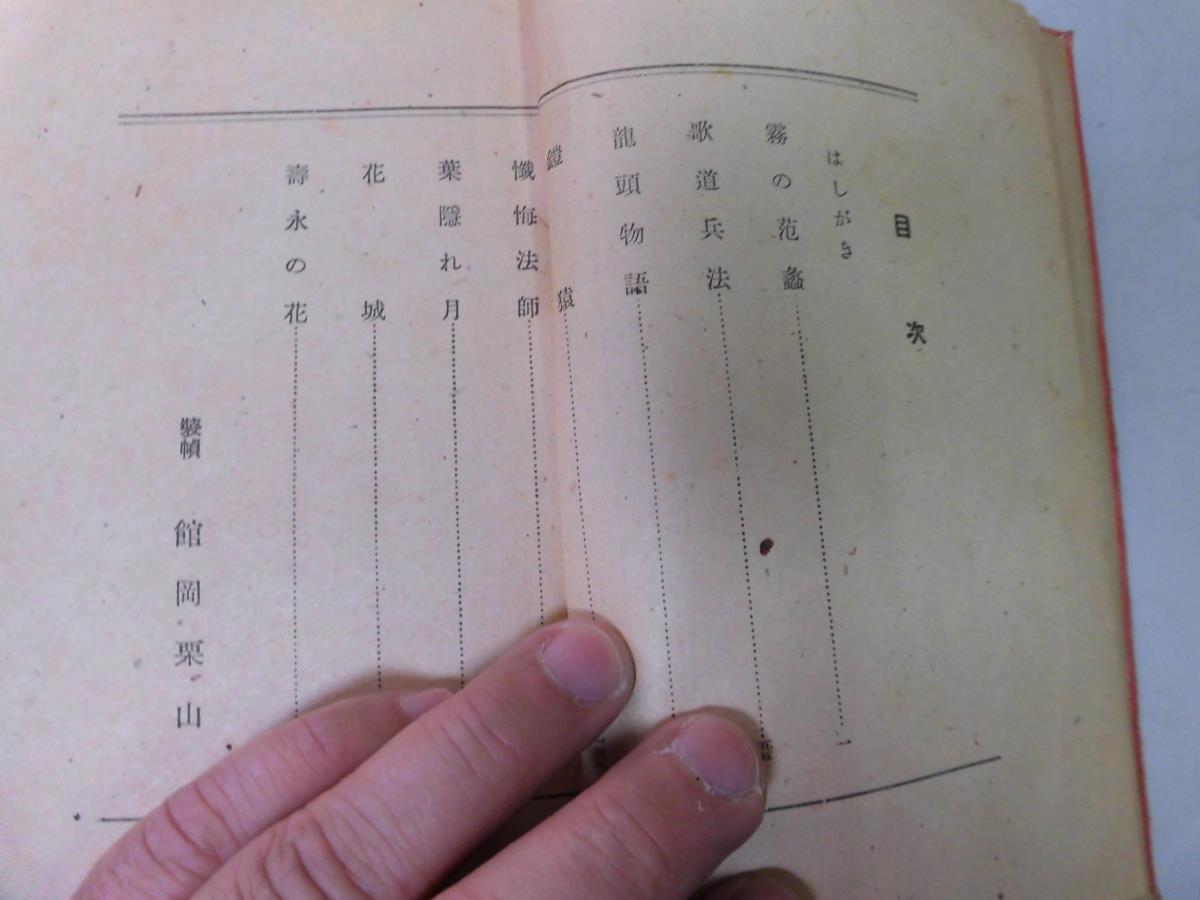 目次
はしがき
霧の范蠡……一
歌道兵法……五五
龍頭物語……
鎧猿……
懺悔法師……
葉隠れ月……
花城……
壽永の花……
装幀 館岡栗山